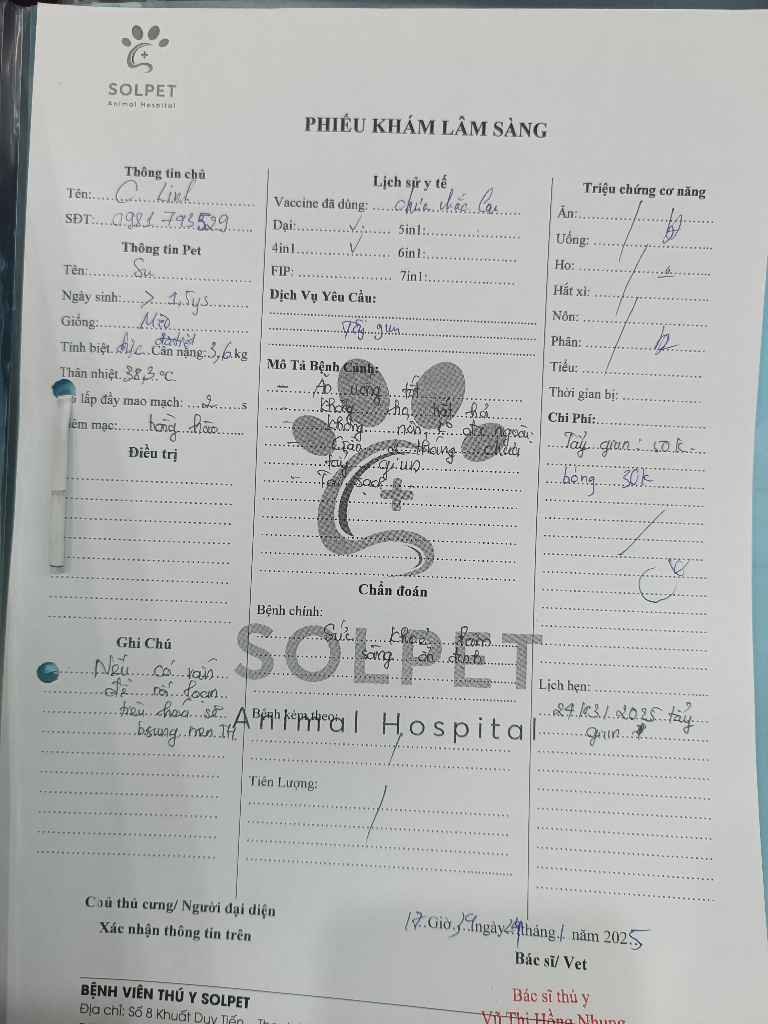 SOLPET
Animal Hospital
PHIẾU KHÁM LÂM SÀNG
Thông tin chủ
Tên: C Linh
SĐT: 0981 793529
Thông tin Pet
Tên: Su
Ngày sinh: > 1,5ys
Giống: Mèo
Tính biệt: đực Cân nặng: 3,6 kg
Thân nhiệt: 38,3 °C
lấp đầy mao mạch: 2 s
mạc: hồng hào
Điều trị
Ghi Chú
Nếu có vấn
đề rối loạn
tiêu hoá sẽ
bsung men TH
Lịch sử y tế
Vaccine đã dùng: chưa chắc
Dại: ✓ 5in1:
4in1 ✓ 6in1:
FIP: 7in1:
Dịch Vụ Yêu Cầu:
Tẩy giun
Mô Tả Bệnh Cảnh:
- Ăn uống tốt
- Không ho, hắt hơi
- Không nôn, ỉa ngoài
- Gần 2 tháng chưa
tẩy giun
- Tai sạch
Chẩn đoán
Bệnh chính:
Sức khoẻ lâm
sàng ổn định
SOLPET
Animal Hospital
Bệnh kèm theo:
Tiên Lượng:
Triệu chứng cơ năng
Ăn: b
Uống:
Ho:
Hắt xì:
Nôn:
Phân: b
Tiểu:
Thời gian bị:
Chi Phí:
Tẩy giun: 50k
bóng 30k
Lịch hẹn:
24/03/2025 tẩy
giun
Chủ thú cưng/ Người đại diện
Xác nhận thông tin trên
17 Giờ 39 ngày 24 tháng 1 năm 2025
Bác sĩ/ Vet
Bác sĩ thú y
Vũ Thị Hồng Nhung
BỆNH VIỆN THÚ Y SOLPET
Địa chỉ: Số 8 Khuất Duy Tiến